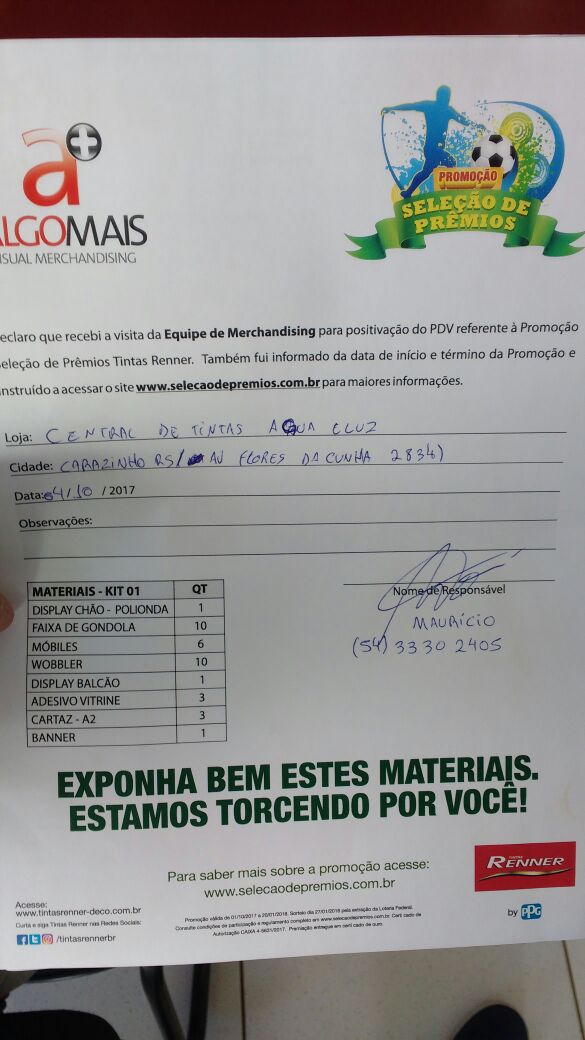 a+
ALGOMAIS
ISUAL MERCHANDISING
PROMOÇÃO
SELEÇÃO DE
PRÊMIOS
eclaro que recebi a visita da Equipe de Merchandising para positivação do PDV referente à Promoção
eleção de Prêmios Tintas Renner. Também fui informado da data de início e término da Promoção e
nstruído a acessar o site www.selecaodepremios.com.br para maiores informações.
Loja: CENTRAL DE TINTAS AGUA CLUZ
Cidade: CARAZINHO RS/ AV FLORES DA CUNHA 2834)
Data: 04/10 / 2017
Observações:
MATERIAIS - KIT 01 QT
DISPLAY CHÃO - POLIONDA 1
FAIXA DE GONDOLA 10
MÓBILES 6
WOBBLER 10
DISPLAY BALCÃO 1
ADESIVO VITRINE 3
CARTAZ - A2 3
BANNER 1
Nome de Responsável
MAURÍCIO
(54) 3330 2405
EXPONHA BEM ESTES MATERIAIS.
ESTAMOS TORCENDO POR VOCÊ!
Para saber mais sobre a promoção acesse:
www.selecaodepremios.com.br
TINTAS
RENNER
by PPG
Acesse:
www.tintasrenner-deco.com.br
Curta e siga Tintas Renner nas Redes Sociais:
/tintasrennerbr
Promoção válida de 01/10/2017 a 20/01/2018. Sorteio dia 27/01/2018 pela extração da Loteria Federal.
Consulte condições de participação e regulamento completo em www.selecaodepremios.com.br. Certificado de
Autorização CAIXA 4-5631/2017. Premiação entregue em certificado de ouro.